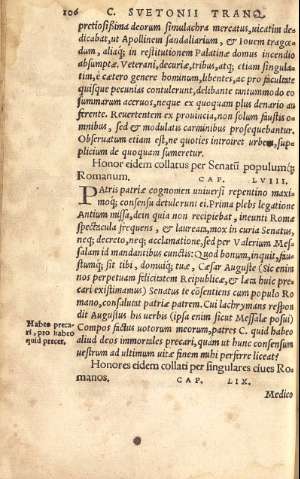 106 C. SVETONII TRANQ.
pretiosissima deorum simulachra mercatus, uicatim de
dicabat, ut Apollinem sandaliarium, & Iouem tragoe-
dum, aliaq; in restitutionem Palatinæ domus incendio
absumptæ. Veterani, decuriæ, tribus, atq; etiam singula-
tim, è cætero genere hominum, libentes, ac pro facultate
quisque pecunias contulerunt, delibante tantummodo eo
summarum aceruos, neque ex quoquam plus denario au
ferente. Reuertentem ex prouincia, non solum faustis o-
mnibus, sed & modulatis carminibus prosequebantur.
Obseruatum etiam est, ne quoties introiret urbem, sup-
plicium de quoquam sumeretur.
Honor eidem collatus per Senatū populumq;
Romanum. CAP. LVIII.
Patris patriæ cognomen uniuersi repentino maxi-
moq; consensu detulerunt ei. Prima plebs legatione
Antium missa, dein quia non recipiebat, ineunti Romæ
spectacula frequens, & laureata, mox in curia Senatus,
neq; decreto, neq; acclamatione, sed per Valerium Mes-
salam id mandantibus cunctis: Quod bonum, inquit, fau-
stumq; sit tibi, domuiq; tuæ, Cæsar Auguste (Sic enim
nos perpetuam felicitatem Reipublicæ, & læta huic pre-
cari existimamus) Senatus te cōsentiens cum populo Ro
mano, consalutat patriæ patrem. Cui lachrymans respon
dit Augustus his uerbis (ipsa enim sicut Messalæ posui)
Habeo preca-
ri, pro habeo
quid precer.
Compos factus uotorum meorum, patres C. quid habeo
aliud deos immortales precari, quàm ut hunc consensum
uestrum ad ultimum uitæ finem mihi perferre liceat?
Honores eidem collati per singulares ciues Ro
manos. CAP. LIX.
Medico